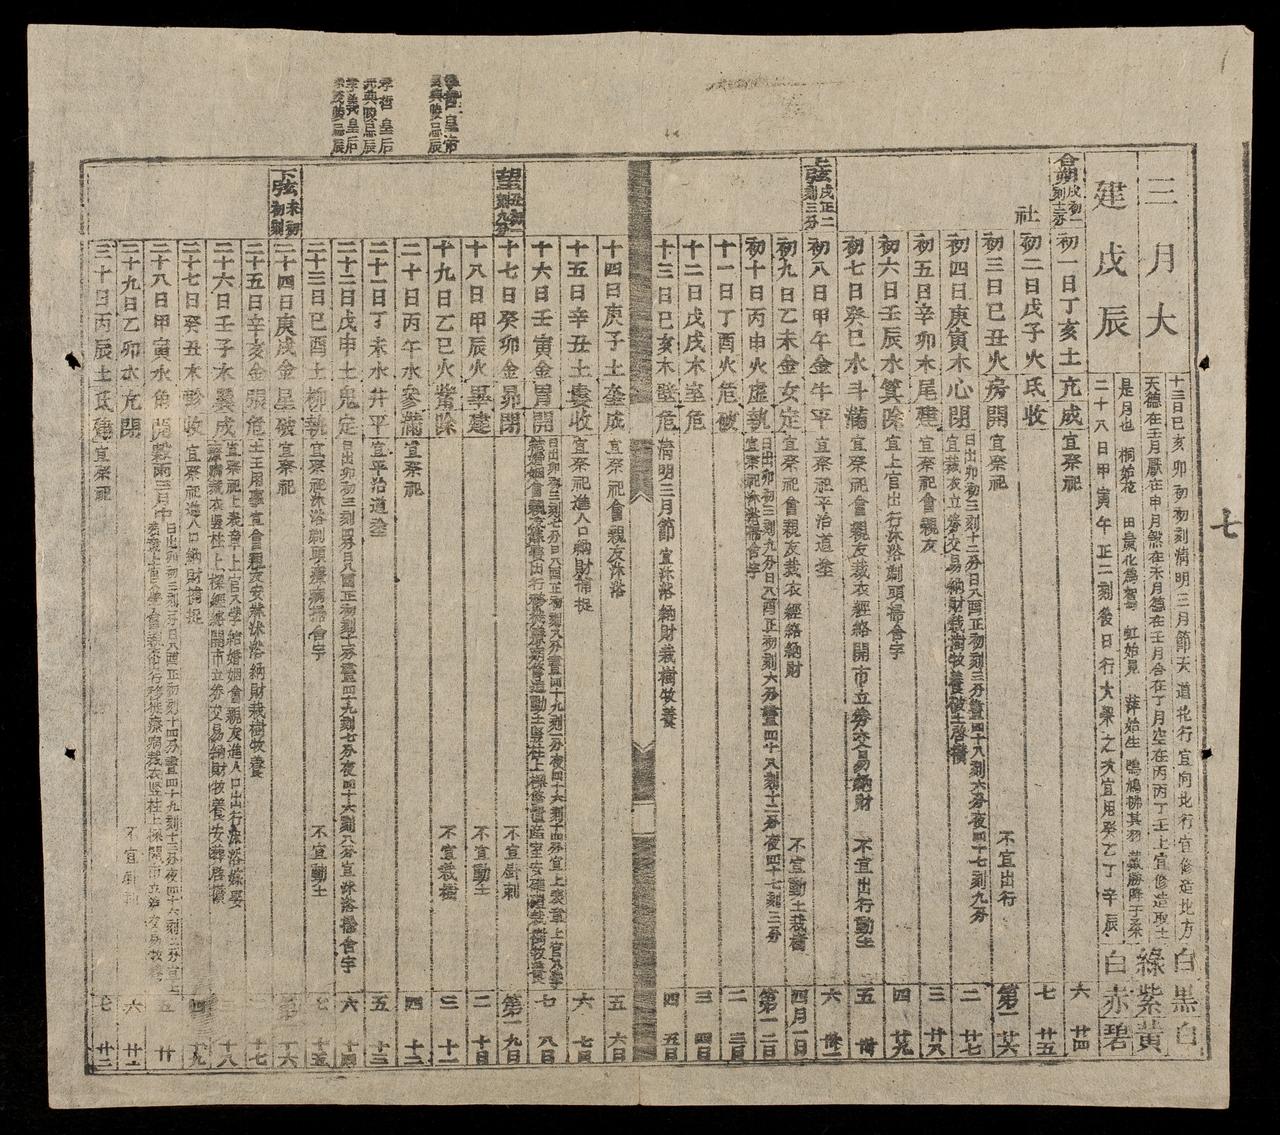 七
三月大
建戊辰
十三日己亥卯初初刻清明三月節天道北行宜向北行宜修造北方
天德在壬月厭在申月煞在未月德在壬月合在丁月空在丙丙丁壬上宜修造取土
是月也 桐始花 田鼠化為鴽 虹始見 萍始生 鳴鳩拂其羽 戴勝降于桑
二十八日甲寅午正二刻後日行大梁之次宜用癸乙丁辛辰
白黑白
綠紫黃
白赤碧
合朔
初一日丁亥土亢成宜祭祀 六 廿四
社
初二日戊子火氐收 七 廿五
初三日己丑火房開宜祭祀 不宜出行 第一 廿六
初四日庚寅木心閉 日出卯初三刻十二分日入酉正初刻三分晝四十八刻六分夜四十七刻九分
宜裁衣立券交易納財栽樹牧養破土啓攢 二 廿七
初五日辛卯木尾建宜祭祀會親友 三 廿八
初六日壬辰水箕除宜上官出行沐浴剃頭掃舍宇 四 廿九
初七日癸巳水斗滿宜祭祀會親友裁衣經絡開市立券交易納財 不宜出行動土 五 卅
上弦戌正二刻三分
初八日甲午金牛平 六
初九日乙未金女定宜祭祀會親友裁衣經絡納財 不宜動土栽樹 四月一日
初十日丙申火虛執 日出卯初三刻九分日入酉正初刻六分晝四十八刻十二分夜四十七刻三分
宜祭祀沐浴掃舍宇 第一 二日
十一日丁酉火危破 二 三日
十二日戊戌木室危 三 四日
十三日己亥木壁危清明三月節 宜沐浴納財栽樹牧養 四 五日
十四日庚子土奎成宜祭祀會親友沐浴 五 六日
十五日辛丑土婁收宜祭祀進人口納財捕捉 六 七日
十六日壬寅金胃開 七 八日
望
十七日癸卯金昴閉 不宜針刺 第一 九日
十八日甲辰火畢建 不宜動土 二 十日
十九日乙巳火觜除 不宜栽樹 三 十一
二十日丙午水參滿宜祭祀 四 十二
二十一日丁未水井平宜平治道塗 五 十三
二十二日戊申土鬼定 日出卯初三刻四分日入酉正初刻十一分晝四十九刻七分夜四十六刻八分宜沐浴掃舍宇 六 十四
二十三日己酉土柳執宜祭祀沐浴剃頭療病掃舍宇 不宜動土 七 十五
下弦未初初刻
二十四日庚戌金星破宜祭祀 十六
二十五日辛亥金張危土王用事宜會親友安牀沐浴納財栽樹牧養 十七
二十六日壬子木翼成宜祭祀上表章上官入學結婚姻會親友進人口出行沐浴嫁娶
療病裁衣豎柱上樑經絡開市立券交易納財牧養安葬啓攢 十八
二十七日癸丑木軫收宜祭祀進人口納財捕捉 四 十九
二十八日甲寅水角開穀雨三月中 廿
二十九日乙卯水亢閉 不宜針刺 六
三十日丙辰土氐建宜祭祀 七 廿二
皇帝
忌辰
孝哲 皇后
忌辰
皇后
忌辰